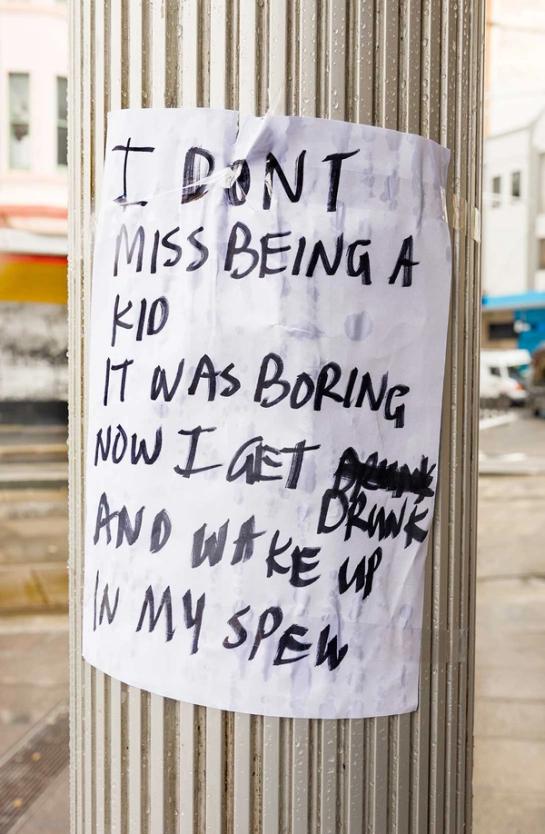 I DONT
MISS BEING A
KID
IT WAS BORING
NOW I GET DRUNK
DRUNK
AND WAKE UP
IN MY SPEW